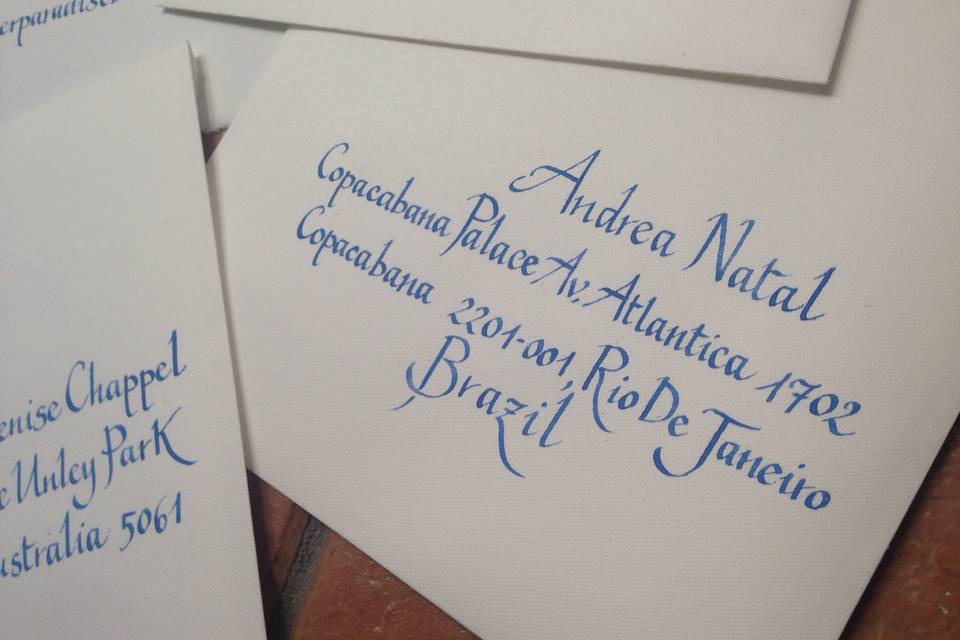 erparadise
Andrea Natal
Copacabana Palace Av. Atlantica 1702
Copacabana 2201-001, Rio De Janeiro
Brazil
enise Chappel
e Unley Park
ustralia 5061